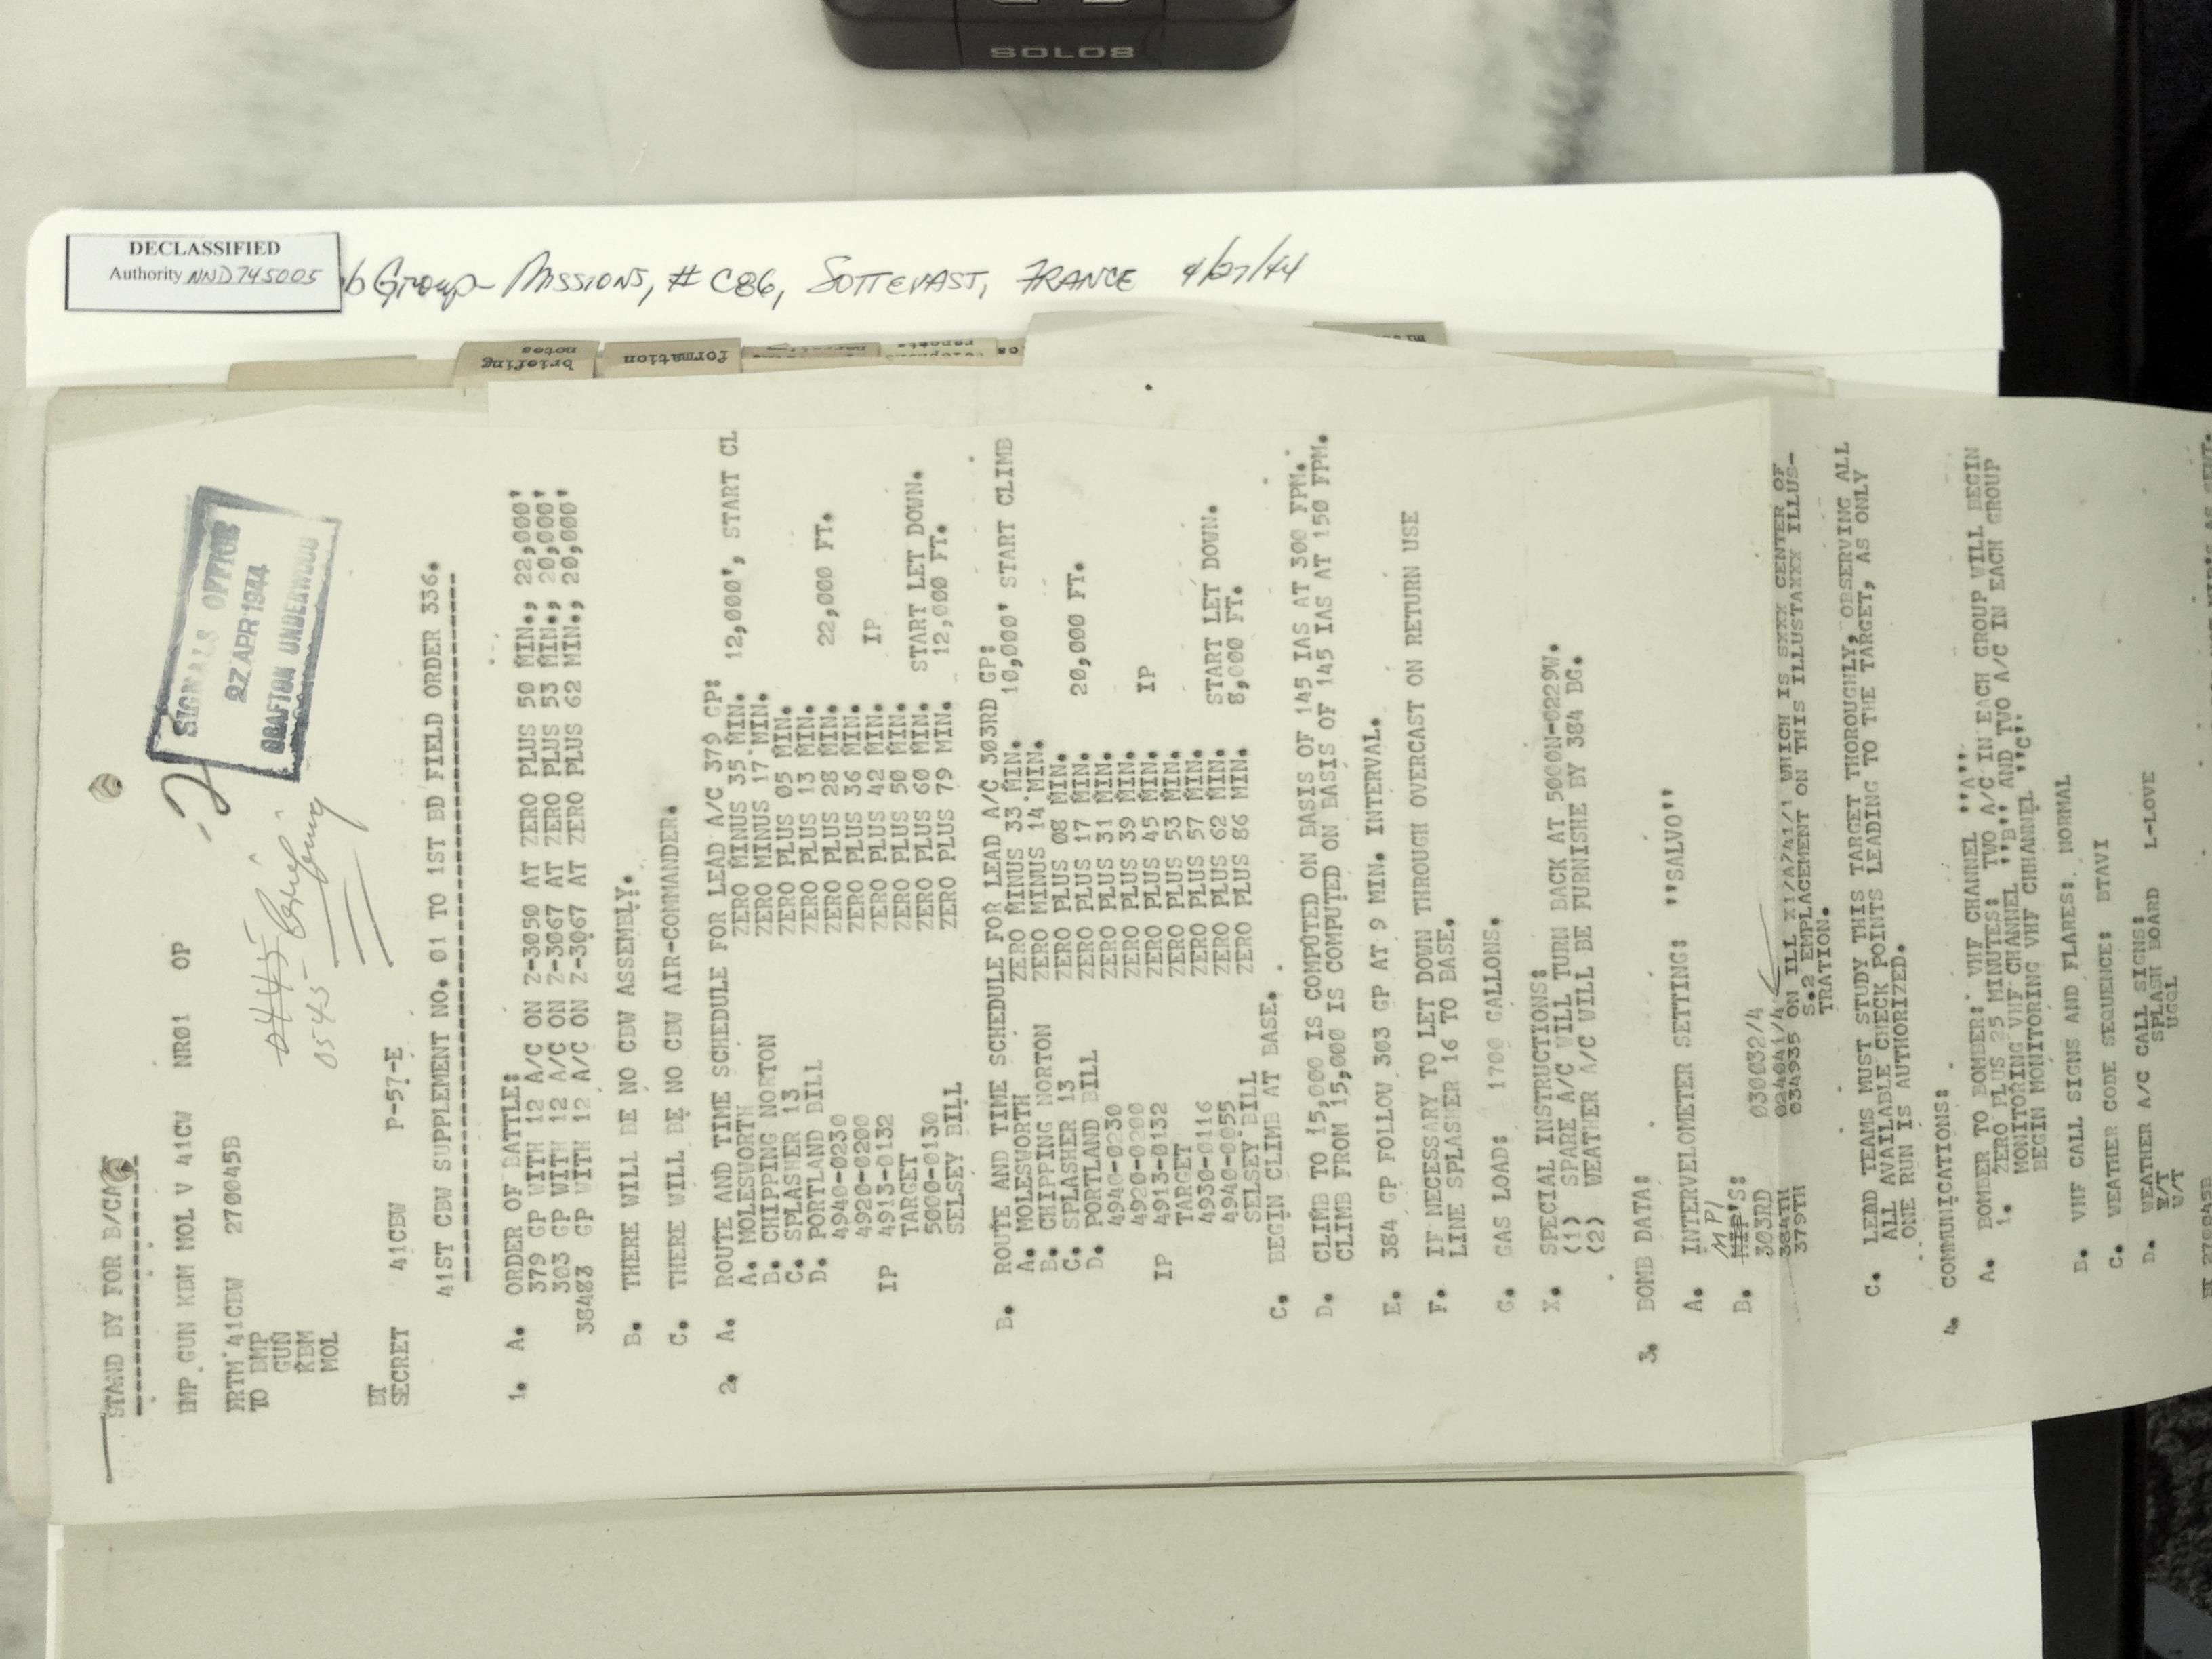 SOLO8
DECLASSIFIED
Authority NND 745005
b Group - Missions, # C86, SOTTEVAST, FRANCE 4/27/44
briefing
notes
formation
reports
SIGNALS OFFICE
27 APR 1944
GRAFTON UNDERWOOD
2
0445
0545 - Briefing
STAND BY FOR B/CA
BMP GUN KBM MOL V 41CW NR01 OP
FRTM 41CBW 270045B
TO BMP
GUN
KBM
MOL
BT
SECRET 41CBW P-57-E
41ST CBW SUPPLEMENT NO. 01 TO 1ST BD FIELD ORDER 336.
1. A. ORDER OF BATTLE:
379 GP WITH 12 A/C ON Z-3050 AT ZERO PLUS 50 MIN., 22,000'
303 GP WITH 12 A/C ON Z-3067 AT ZERO PLUS 53 MIN., 20,000'
38483 GP WITH 12 A/C ON Z-3067 AT ZERO PLUS 62 MIN., 20,000'
B. THERE WILL BE NO CBW ASSEMBLY.
C. THERE WILL BE NO CBW AIR-COMMANDER.
2. A. ROUTE AND TIME SCHEDULE FOR LEAD A/C 379 GP:
A. MOLESWORTH ZERO MINUS 35 MIN. 12,000', START CL
B. CHIPPING NORTON ZERO MINUS 17 MIN.
C. SPLASHER 13 ZERO PLUS 05 MIN.
D. PORTLAND BILL ZERO PLUS 13 MIN.
4940-0230 ZERO PLUS 28 MIN. 22,000 FT.
4920-0200 ZERO PLUS 36 MIN.
IP 4913-0132 ZERO PLUS 42 MIN. IP
TARGET ZERO PLUS 50 MIN.
5000-0130 ZERO PLUS 60 MIN. START LET DOWN.
SELSEY BILL ZERO PLUS 79 MIN. 12,000 FT.
B. ROUTE AND TIME SCHEDULE FOR LEAD A/C 303RD GP:
A. MOLESWORTH ZERO MINUS 33 MIN. 10,000' START CLIMB
B. CHIPPING NORTON ZERO MINUS 14 MIN.
C. SPLASHER 13 ZERO PLUS 08 MIN.
D. PORTLAND BILL ZERO PLUS 17 MIN.
4940-0230 ZERO PLUS 31 MIN. 20,000 FT.
4920-0200 ZERO PLUS 39 MIN.
IP 4913-0132 ZERO PLUS 45 MIN. IP
TARGET ZERO PLUS 53 MIN.
4930-0116 ZERO PLUS 57 MIN.
4940-0055 ZERO PLUS 62 MIN. START LET DOWN.
SELSEY BILL ZERO PLUS 86 MIN. 8,000 FT.
C. BEGIN CLIMB AT BASE.
D. CLIMB TO 15,000 IS COMPUTED ON BASIS OF 145 IAS AT 300 FPM.
CLIMB FROM 15,000 IS COMPUTED ON BASIS OF 145 IAS AT 150 FPM.
E. 384 GP FOLLOW 303 GP AT 9 MIN. INTERVAL.
F. IF NECESSARY TO LET DOWN THROUGH OVERCAST ON RETURN USE
LINE SPLASHER 16 TO BASE.
G. GAS LOAD: 1700 GALLONS.
X. SPECIAL INSTRUCTIONS:
(1) SPARE A/C WILL TURN BACK AT 5000N-0229W.
(2) WEATHER A/C WILL BE FURNISHE BY 384 BG.
3. BOMB DATA:
A. INTERVELOMETER SETTING: ''SALVO''
MPI
B. MIP'S:
303RD 030032/4
384TH 024041/4
379TH 034935 ON ILL X1/A/41/1 WHICH IS SXXX CENTER OF
S.2 EMPLACEMENT ON THIS ILLUSTAXXX ILLUS-
TRATION.
C. LEAD TEAMS MUST STUDY THIS TARGET THOROUGHLY, OBSERVING ALL
ALL AVAILABLE CHECK POINTS LEADING TO THE TARGET, AS ONLY
ONE RUN IS AUTHORIZED.
4. COMMUNICATIONS:
A. BOMBER TO BOMBER: VHF CHANNEL ''A''.
1. ZERO PLUS 25 MINUTES: TWO A/C IN EACH GROUP WILL BEGIN
MONITORING VHF CHANNEL ''B'' AND TWO A/C IN EACH GROUP
BEGIN MONITORING VHF CHHANNEL ''C''.
B. VHF CALL SIGNS AND FLARES: NORMAL
C. WEATHER CODE SEQUENCE: BTAVI
D. WEATHER A/C CALL SIGNS:
R/T SPLASH BOARD L-LOVE
W/T UGQL